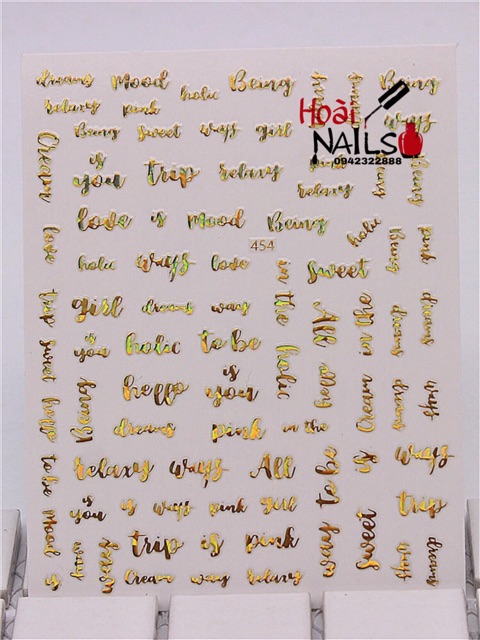 dreams mood holic Being Being
relaxy pink
Hoài
NAILS
0942322888
ways
Being sweet ways girl
Cream
is
you trip relaxy
relaxy
love is mood Being
454
love holic ways love sweet
holic
Being
pink
trip girl dreams ways
in the
All
in the
dreams
dreams
is
you holic to be
sweet
holic
hello
Cream
hello
Being
hello is
you
dreams pink in the
relaxy ways All
to be
to be
is
ways
trip
is
you is ways pink girl
mood
sweet
trip is pink
ways
ways
is
Cream ways relaxy
dreams